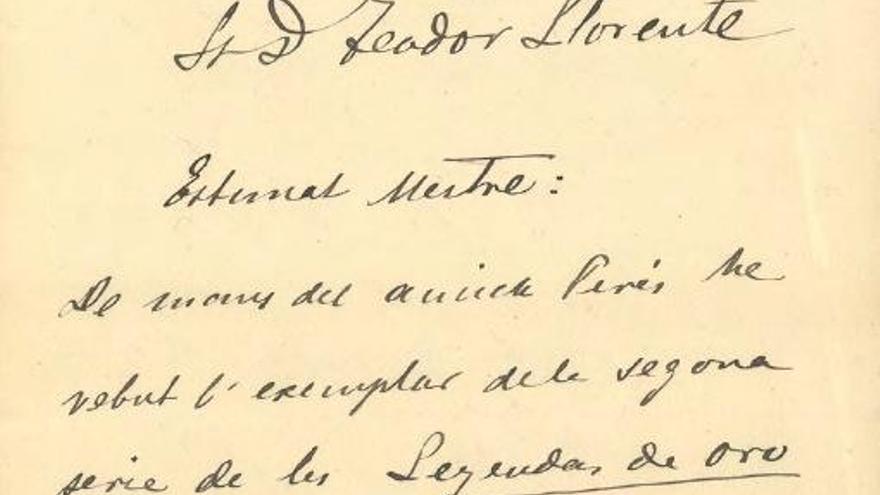 Sr D Teodor Llorente
Estimat Mestre:
De mans del amich Perés he
rebut l'exemplar de la segona
serie de les Leyendas de oro